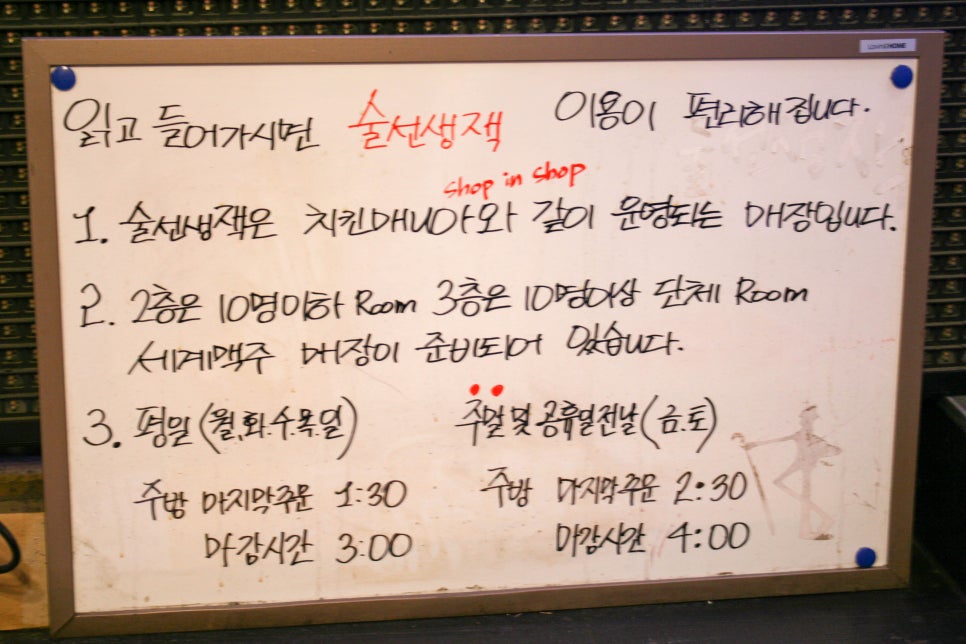 LOVING HOME
읽고 들어가시면 술선생잭 이용이 편리해집니다.
shop in shop
1. 술선생잭은 치킨매니아와 같이 운영되는 매장입니다.
2. 2층은 10명이하 Room 3층은 10명이상 단체 Room
세계맥주 매장이 준비되어 있습니다.
3. 평일(월.화.수.목.일) 주말 및 공휴일전날(금.토)
주방 마지막주문 1:30 주방 마지막주문 2:30
마감시간 3:00 마감시간 4:00